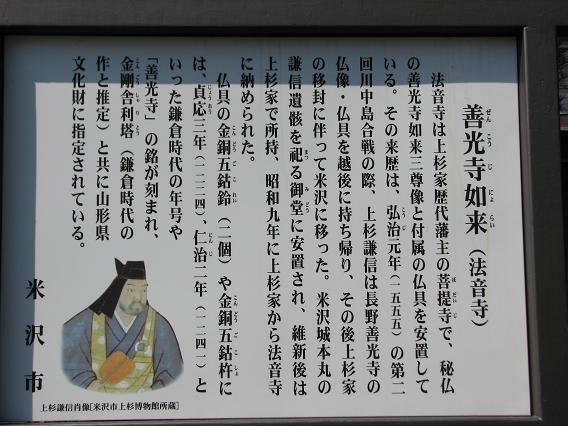 善光寺如来(法音寺)
ぜんこうじにょらい
法音寺は上杉家歴代藩主の菩提寺で、秘仏
ぼだいじ
の善光寺如来三尊像と付属の仏具を安置して
いる。その来歴は、弘治元年(一五五五)の第二
こうじ
回川中島合戦の際、上杉謙信は長野善光寺の
仏像・仏具を越後に持ち帰り、その後上杉家
の移封に伴って米沢に移った。米沢城本丸の
謙信遺骸を祀る御堂に安置され、維新後は
まつ みどう
上杉家で所持、昭和九年に上杉家から法音寺
に納められた。
仏具の金銅五鈷鈴(二個)や金銅五鈷杵に
こんどうごこれい こんどうごこしょ
は、貞応三年(一二二四)、仁治二年(一二四一)と
じょうおう にんじ
いった鎌倉時代の年号や
「善光寺」の銘が刻まれ、
金剛舎利塔(鎌倉時代の
こんごうしゃりとう
作と推定)と共に山形県
文化財に指定されている。
米沢市
上杉謙信肖像[米沢市上杉博物館所蔵]